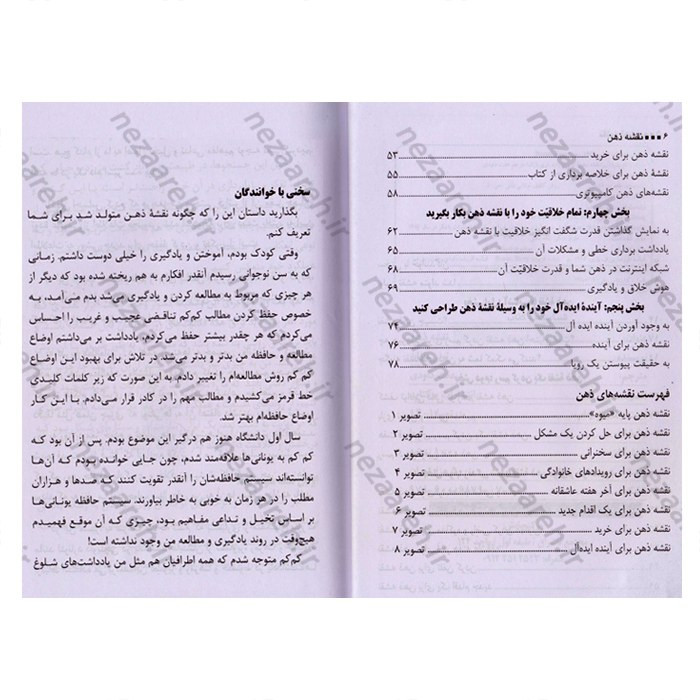 ۶ ■■■ نقشه ذهن
نقشه ذهن برای خرید ۵۳
نقشهٔ ذهن برای خلاصه برداری از کتاب ۵۵
نقشه‌های ذهن کامپیوتری ۵۸
بخش چهارم: تمام خلاقیّت خود را با نقشه ذهن بکار بگیرید
به نمایش گذاشتن قدرت شگفت انگیز خلاقیت با نقشه ذهن ۶۲
یادداشت برداری خطی و مشکلات آن ۶۵
شبکه اینترنت در ذهن شما و قدرت خلاقیّت آن ۶۸
هوش خلاق و یادگیری ۶۹
بخش پنجم: آیندهٔ ایده‌آل خود را به وسیلهٔ نقشهٔ ذهن طراحی کنید
به وجود آوردن آینده ایده آل ۷۴
نقشه ذهن برای آینده ۷۶
به حقیقت پیوستن یک رویا ۷۸
فهرست نقشه‌های ذهن
نقشه ذهن پایه «میوه» تصویر ۱
نقشه ذهن برای حل کردن یک مشکل تصویر ۲
نقشه ذهن برای سخنرانی تصویر ۳
نقشه ذهن برای رویدادهای خانوادگی تصویر ۴
نقشه ذهن برای آخر هفته عاشقانه تصویر ۵
نقشه ذهن برای یک اقدام جدید تصویر ۶
نقشه ذهن برای خرید تصویر ۷
نقشه ذهن برای آینده ایده‌آل تصویر ۸
سخنی با خوانندگان
بگذارید داستان این را که چگونه نقشهٔ ذهن متولد شد برای شما
تعریف کنم.
وقتی کودک بودم، آموختن و یادگیری را خیلی دوست داشتم. زمانی
که به سن نوجوانی رسیدم آنقدر افکارم به هم ریخته شده بود که دیگر از
هر چیزی که مربوط به مطالعه کردن و یادگیری می‌شد بدم می‌آمد، به
خصوص حفظ کردن مطالب کم‌کم تناقضی عجیب و غریب را احساس
می‌کردم که هر چقدر بیشتر حفظ می‌کردم، یادداشت بر می‌داشتم اوضاع
مطالعه و حافظه من بدتر و بدتر می‌شد. در تلاش برای بهبود این اوضاع
کم کم روش مطالعه‌ام را تغییر دادم. به این صورت که زیر کلمات کلیدی
خط قرمز می‌کشیدم و مطالب مهم را در کادر قرار می‌دادم. با این کار
اوضاع حافظه‌ام بهتر شد.
سال اول دانشگاه هنوز هم درگیر این موضوع بودم. پس از آن بود که
کم کم به یونانی‌ها علاقه‌مند شدم، چون جایی خوانده بودم که آن‌ها
توانسته‌اند سیستم حافظه‌شان را آنقدر تقویت کنند که صدها و هزاران
مطلب را در هر زمان به خوبی به خاطر بیاورند. سیستم حافظه یونانی‌ها
بر اساس تخیل و تداعی مفاهیم بود، چیزی که آن موقع فهمیدم
هیچ‌وقت در روند یادگیری و مطالعه من وجود نداشته است!
کم‌کم متوجه شدم که همه اطرافیان هم مثل من یادداشت‌های شلوغ
nezaareh.ir